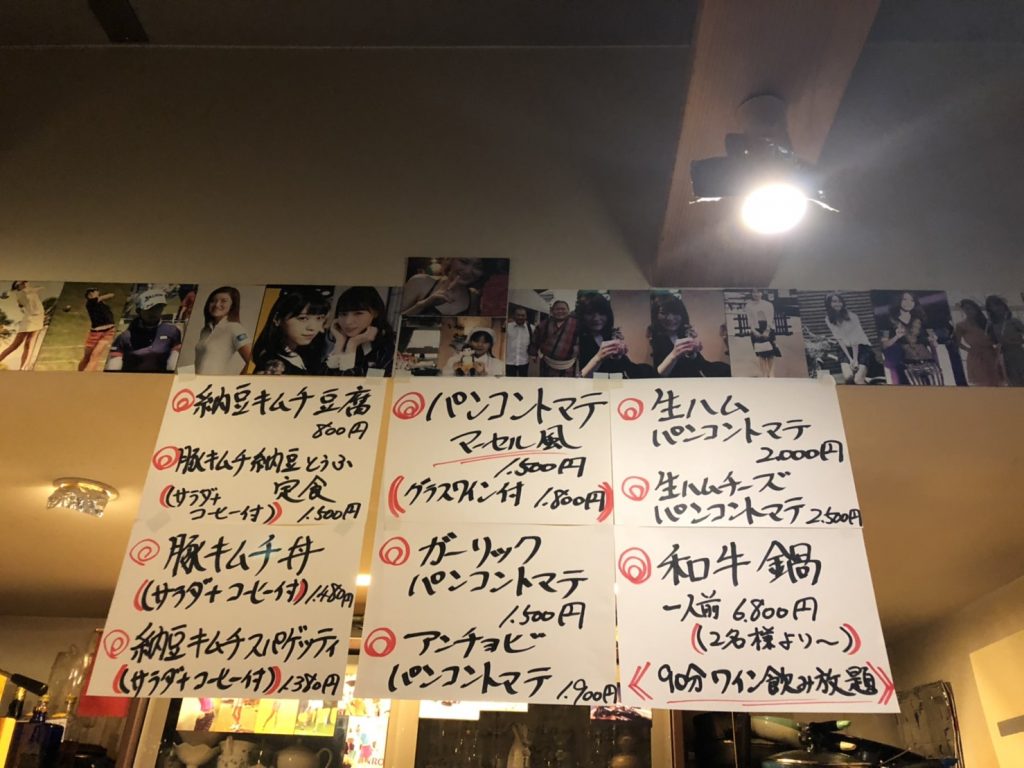 納豆キムチ豆腐
800円
豚キムチ納豆とうふ
定食
(サラダ+
コーヒー付)
1.500円
豚キムチ丼
(サラダ+コーヒー付)1.480円
納豆キムチスパゲッティ
(サラダ+コーヒー付)1.380円
パンコントマテ
マーセル風
1.500円
(グラスワイン付 1.800円)
ガーリック
パンコントマテ
1.500円
アンチョビ
パンコントマテ 1.900円
生ハム
パンコントマテ
2.000円
生ハムチーズ
パンコントマテ 2.500円
和牛鍋
一人前 6.800円
(2名様より〜)
90分ワイン飲み放題